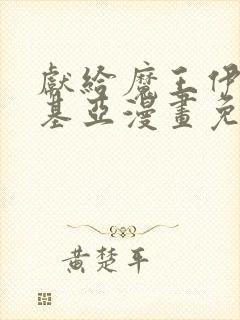 獻給魔王伊
基亞漫畫免
黃楚平